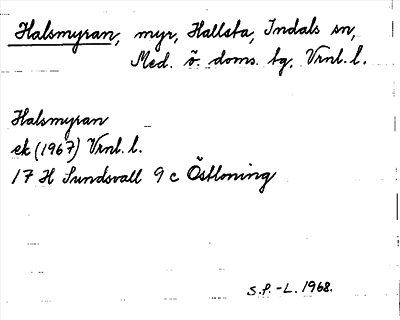 Halsmyran, myr, Hallsta, Indals sn,
Med. ö. doms. tg, Vrnl. l.
Halsmyran
ek (1967) Vrnl. l.
17 H Sundsvall 9 c Östloning
S.P.-L. 1968.